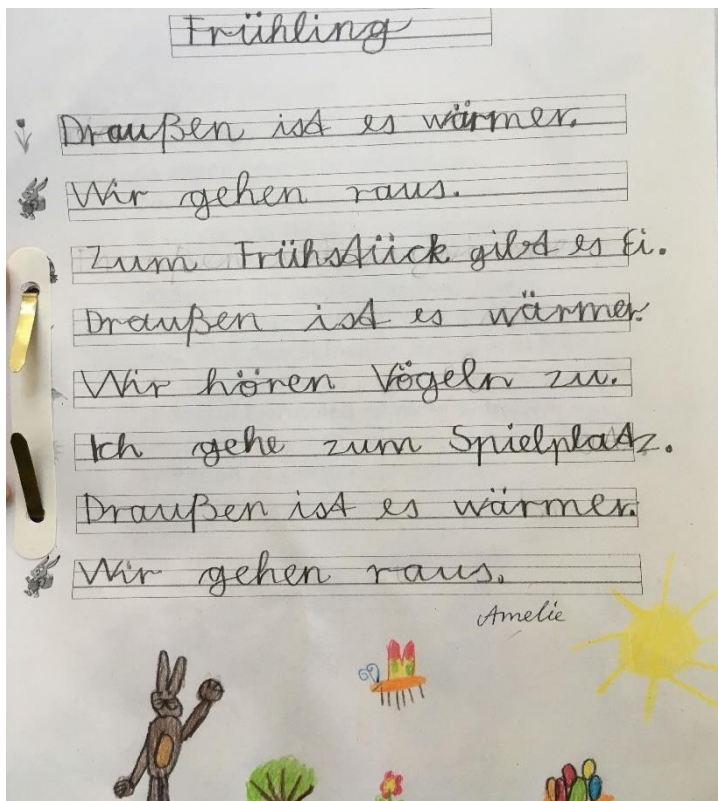 Frühling
Draußen ist es wärmer.
Wir gehen raus.
Zum Frühstück gibt es Ei.
Draußen ist es wärmer.
Wir hören Vögeln zu.
Ich gehe zum Spielplatz.
Draußen ist es wärmer.
Wir gehen raus.
Amelie